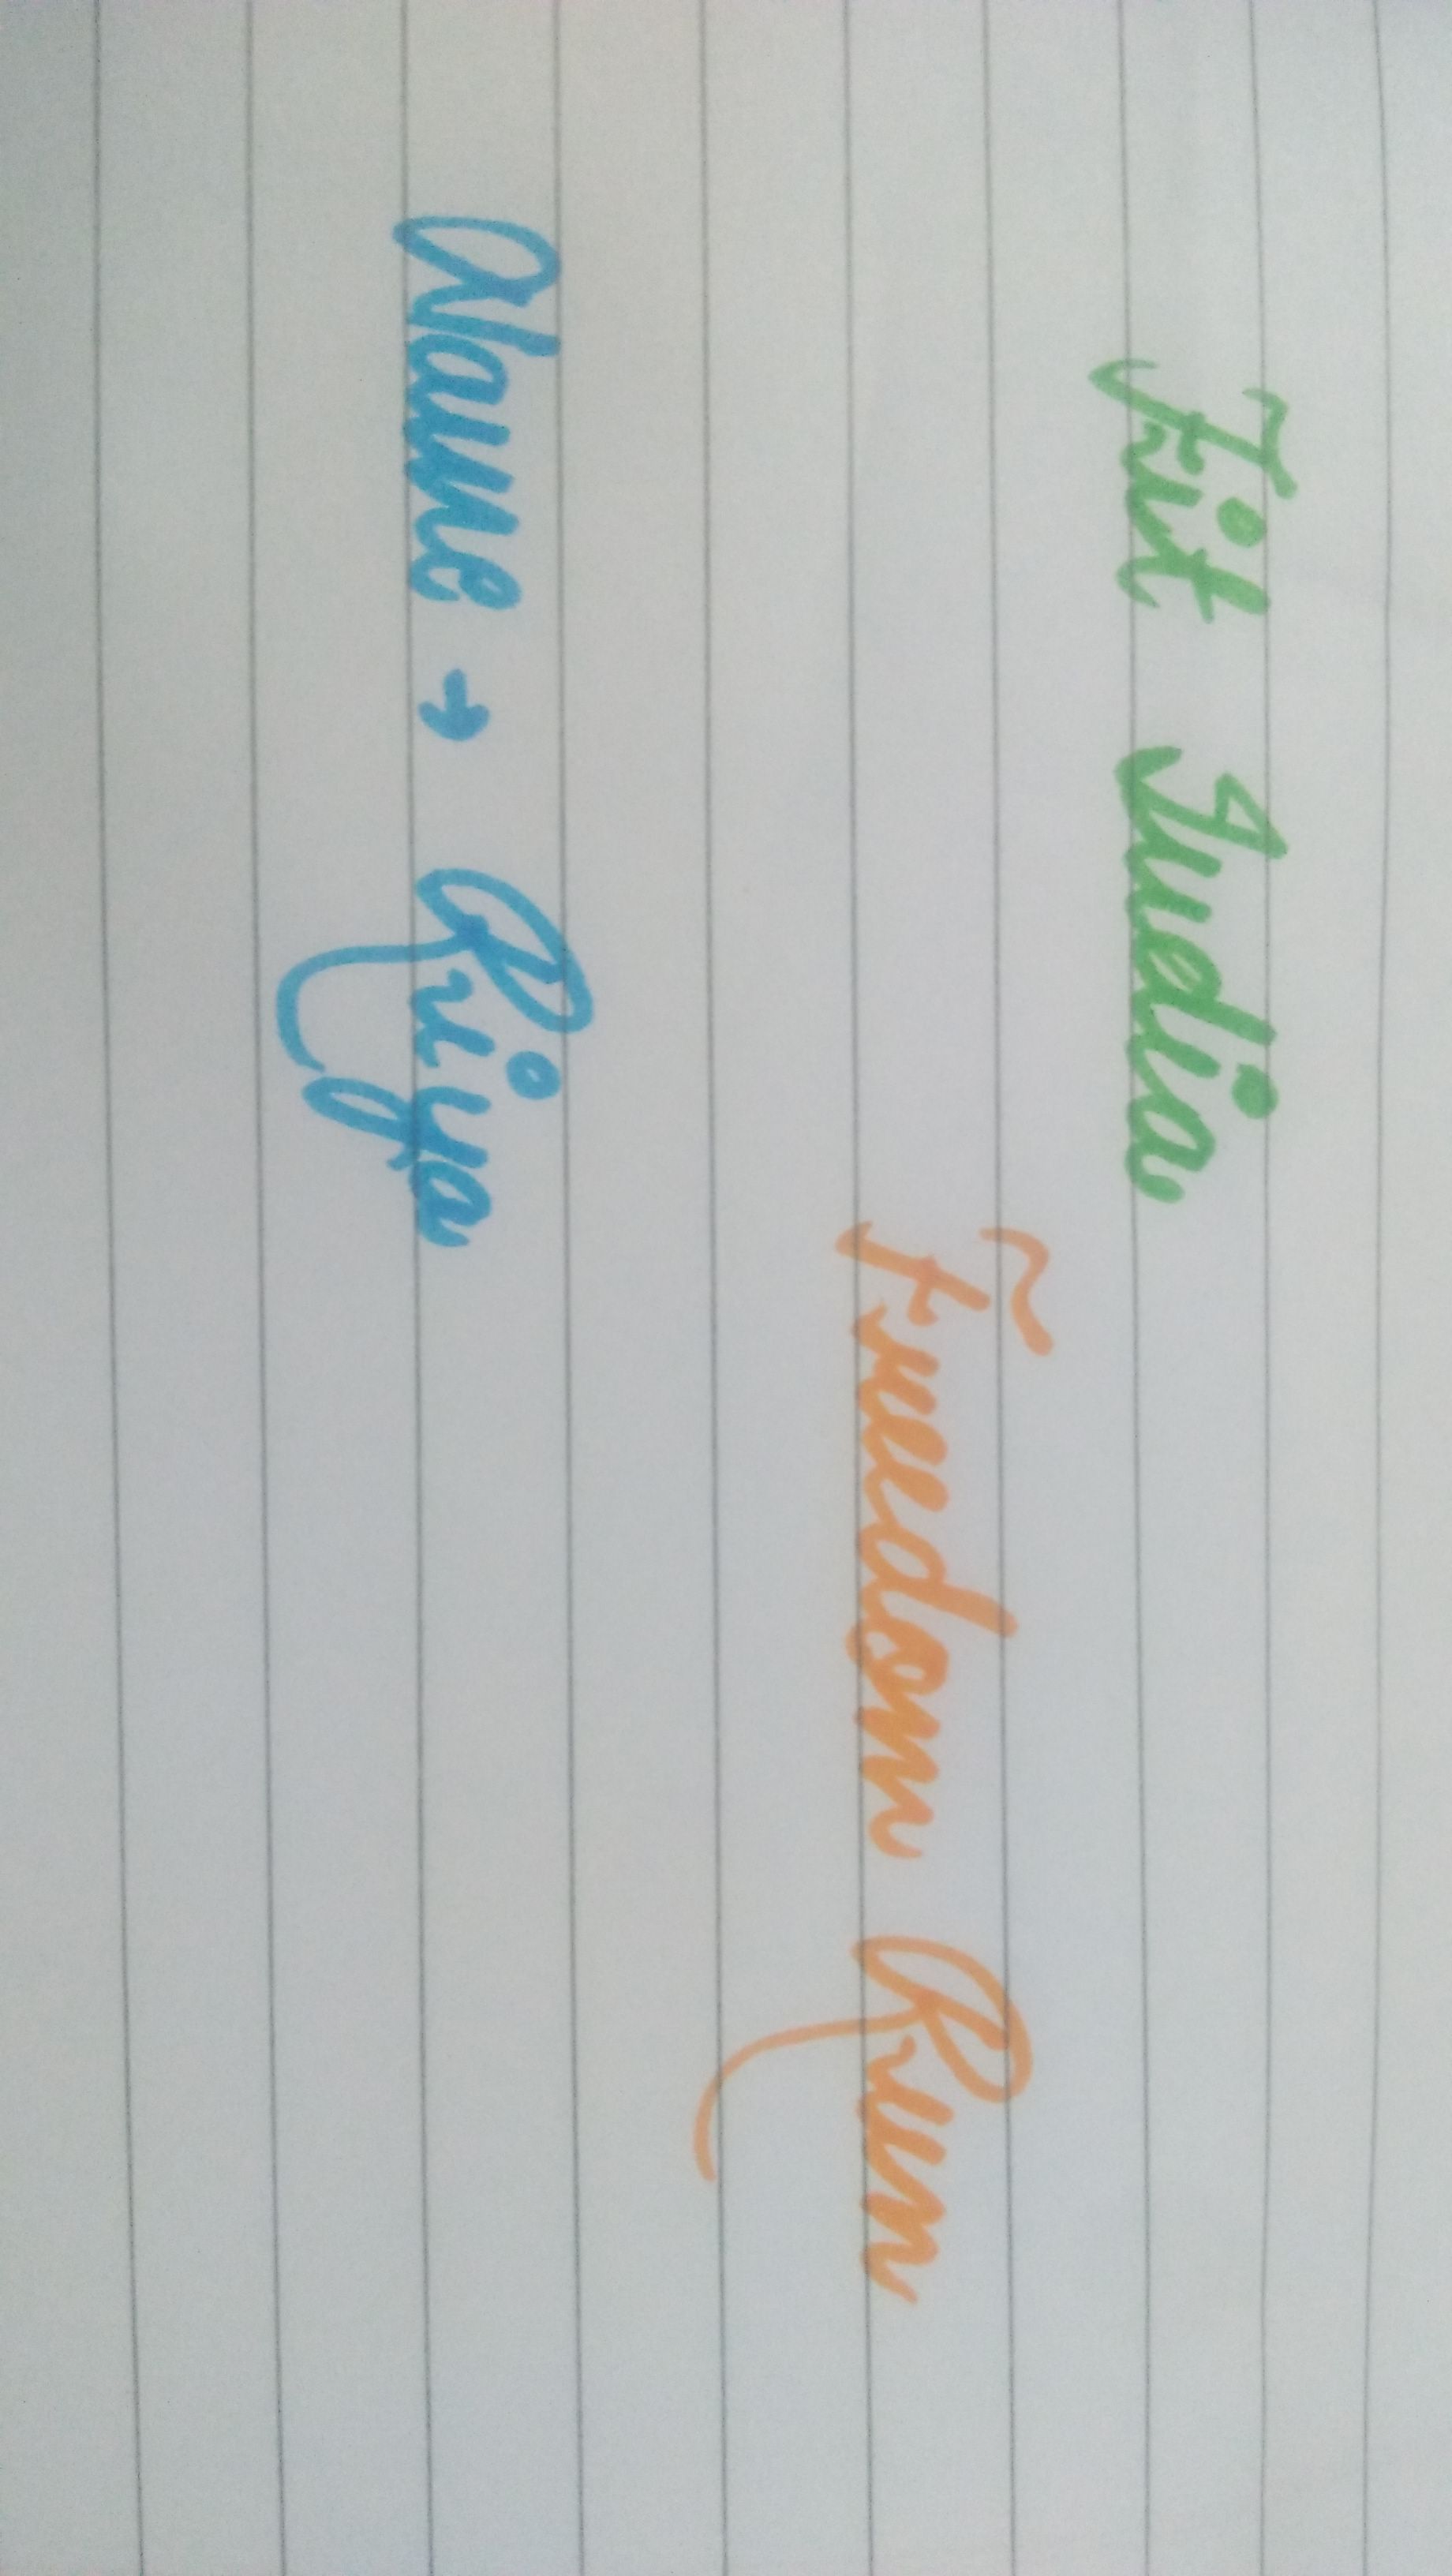 Fit India
Freedom Run
Name → Riya